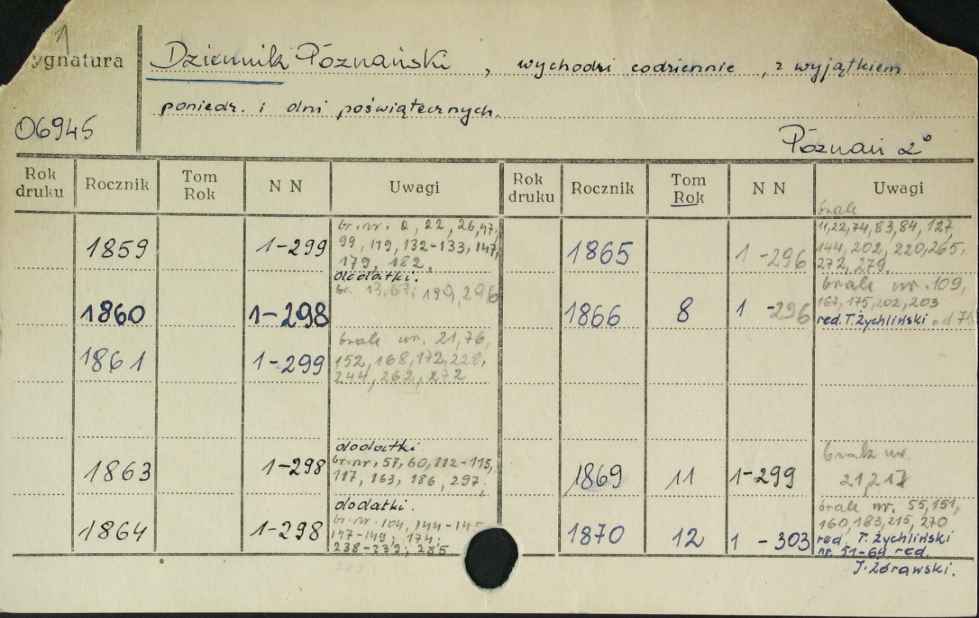 1
ygnatura
Dziennik Póznański, wychodzi codziennie, z wyjątkiem
poniedz. i dni poświątecznych.
06945
Póznań 2°
Rok druku Rocznik Tom Rok N N Uwagi Rok druku Rocznik Tom Rok N N Uwagi
1859 1-299 br. nr. 2, 22, 26, 47,
99, 119, 132-133, 147,
179, 182.
dodatki.
1860 1-298 br. 13, 67, 199, 296
1861 1-299 brak nr. 21, 76,
152, 168, 172, 228,
244, 262, 272
1863 1-298 dodatki
br. nr. 57, 60, 112-115,
117, 163, 186, 297,
1864 1-298 dodatki.
br. nr. 104, 144-145
147-149; 174;
238-272; 285
1865 1-296 brak
11, 22, 74, 83, 84, 127
144, 202, 220, 265,
272, 279.
1866 8 1-296 brak nr. 109,
167, 175, 202, 203
red. T. Żychliński od 76
1869 11 1-299 brak nr.
21, 217
1870 12 1-303 brak nr. 55, 151,
160, 183, 215, 270
red. T. Żychliński
nr. 51-64 red.
J. Żórawski.